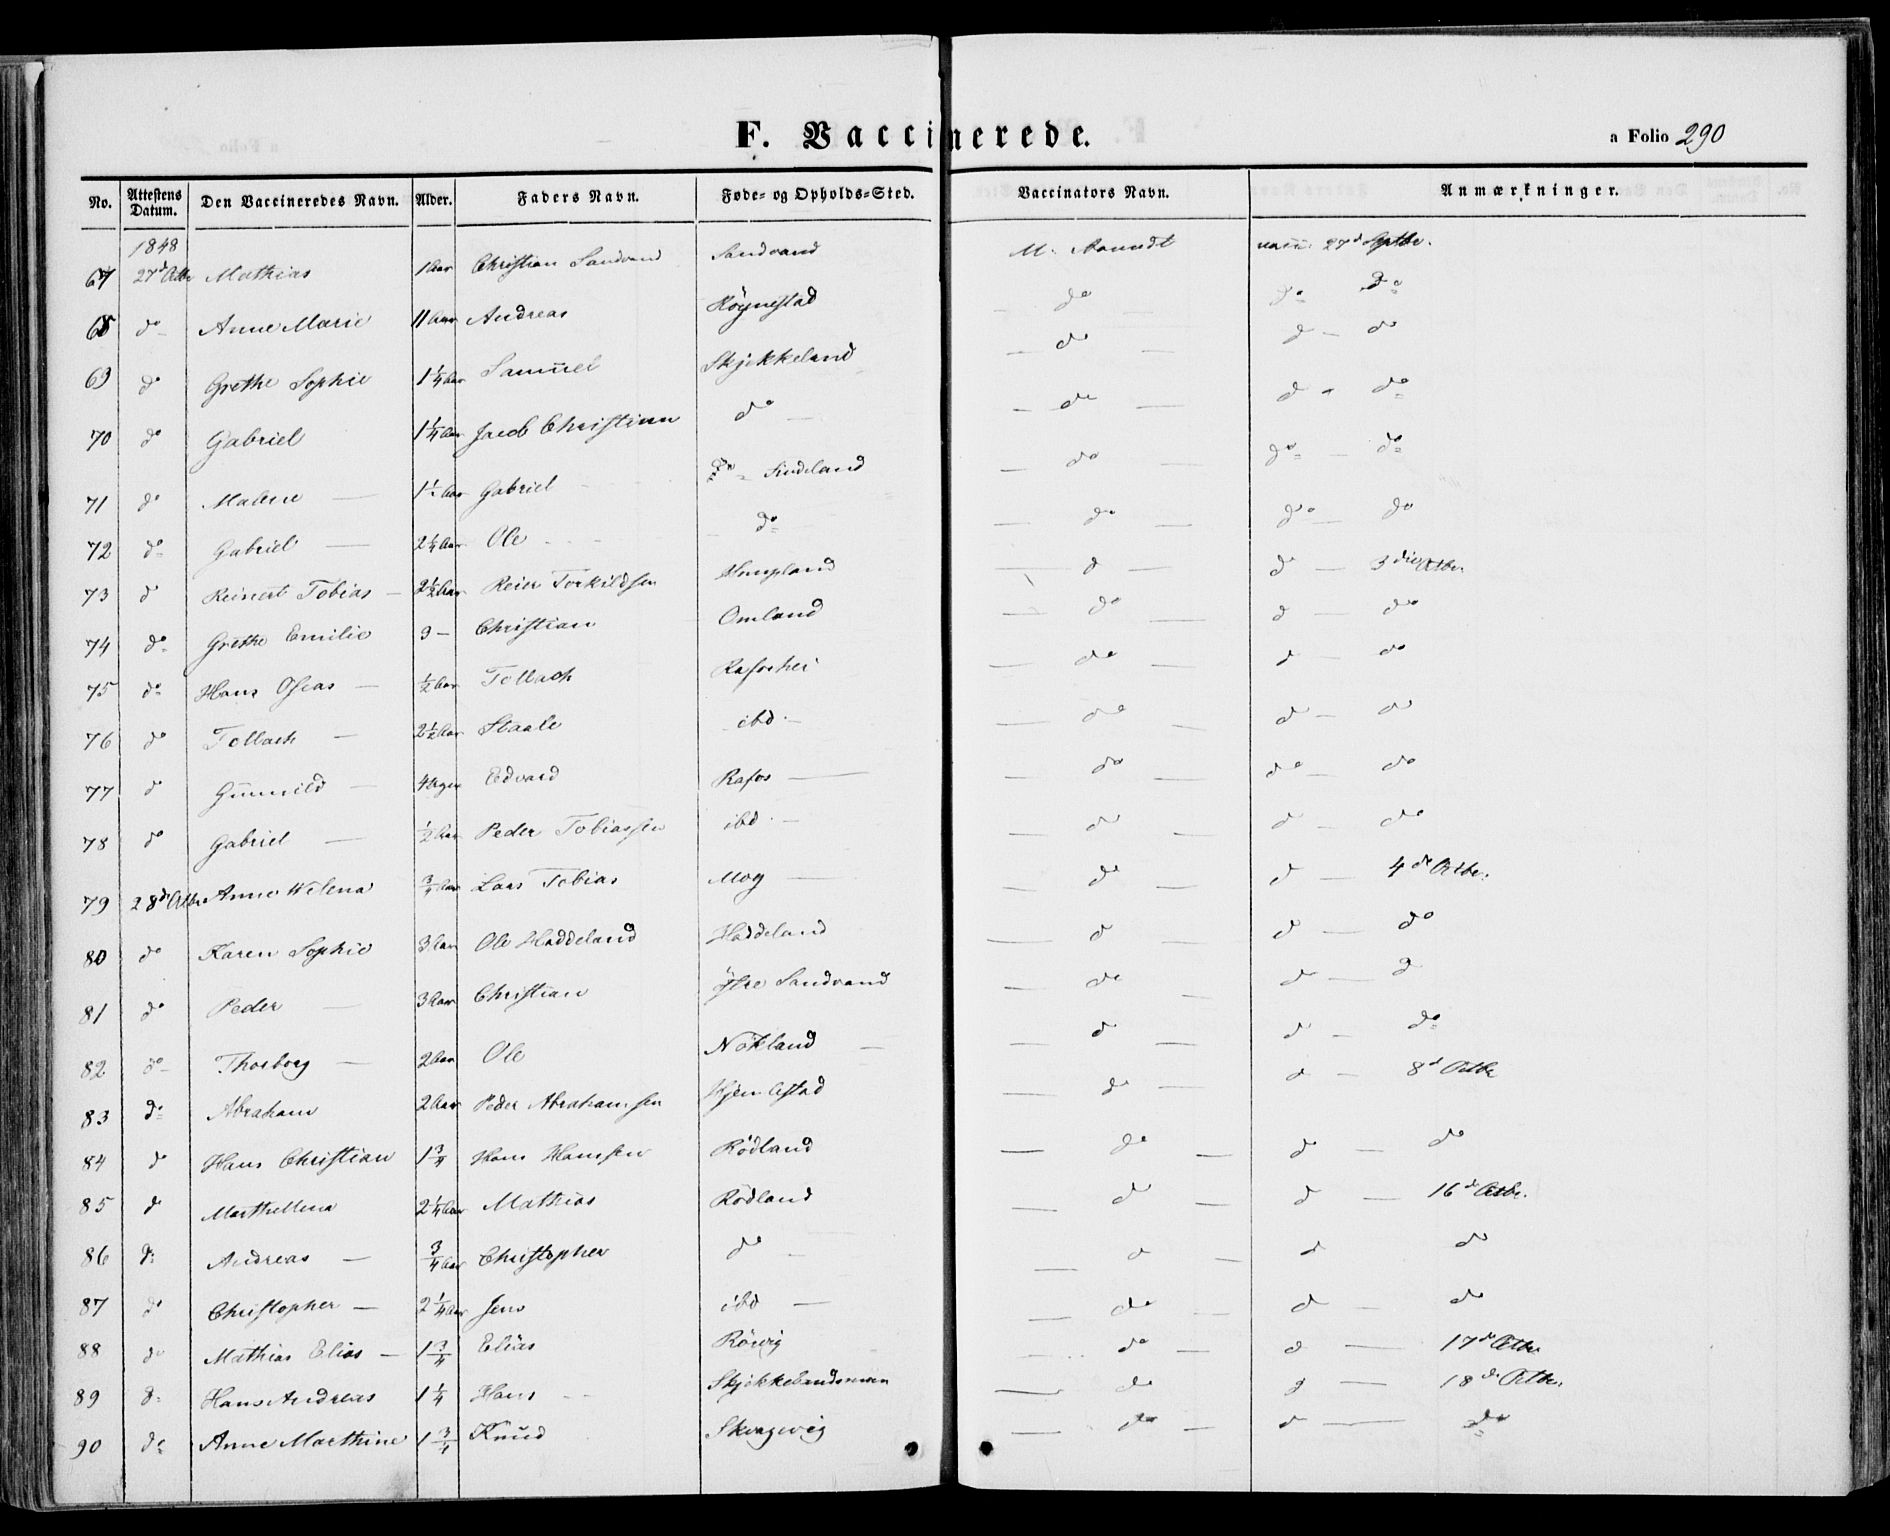 F. Vaccinerede.
a Folio 290
No. Attestens Datum. Den Vaccineredes Navn. Alder. Faders Navn. Føde- og Opholds-Sted. Vaccinators Navn. Anmærkninger.
1848
67 27d Octbr Mathias 1 Aar Christian Sandvand Sandvand M. vacc: 27d Septbr.
68 do Anne Marie 11 Aar Andreas Høgnestad do do do
69 do Grethe Sophie 1¼ Aar Samuel Skjekkeland do d do
70 do Gabriel 1¼ Aar Jacob Christian do do d do
71 do Malene 1½ Aar Gabriel do Sindeland do do do
72 do Gabriel 2¼ Aar Ole do do do do
73 d Reinert Tobias 2½ Aar Reier Torkildsen Hompland d d 3die Octbr.
74 do Grethe Emilie 9 Christian Omland do d do
75 do Hans Oseas ½ Aar Tollach Rafoshei do d do
76 do Tollach 2½ Aar Staale ibd. do d do
77 d Gunnild 4 Edvard Rafos do do do
78 do Gabriel ½ Aar Peder Tobiassen ibd. do d do
79 28d Octbr Anne Helena ¾ Aar Lars Tobias Moy do d 4de Octbr.
80 do Karen Sophie 3 Aar Ole Haddeland Haddeland d d do
81 do Peder 3 Aar Christian Østre Sandvand do d d
82 do Thorborg 2 Aar Ole Nökland d d do
83 do Abraham 2 Aar Peder Abrahamsen do d 8d Octbr
84 do Hans Christian 1¾ Hans Hansen Rödland do d do
85 d Marthe Lena 2¼ Aar Mathias Rödland d d 16de Octbr.
86 d: Andreas ¾ Aar Christopher do d d do
87 do Christopher 2¼ Aar Jens ibd do d do
88 do Mathias Elias 1¾ Elias Rörvig do d 17de Octbr
89 d: Hans Andreas 1¼ Hans do d 18de Octbr.
90 do Anne Marthine 1¾ Knud Skragevig do d do